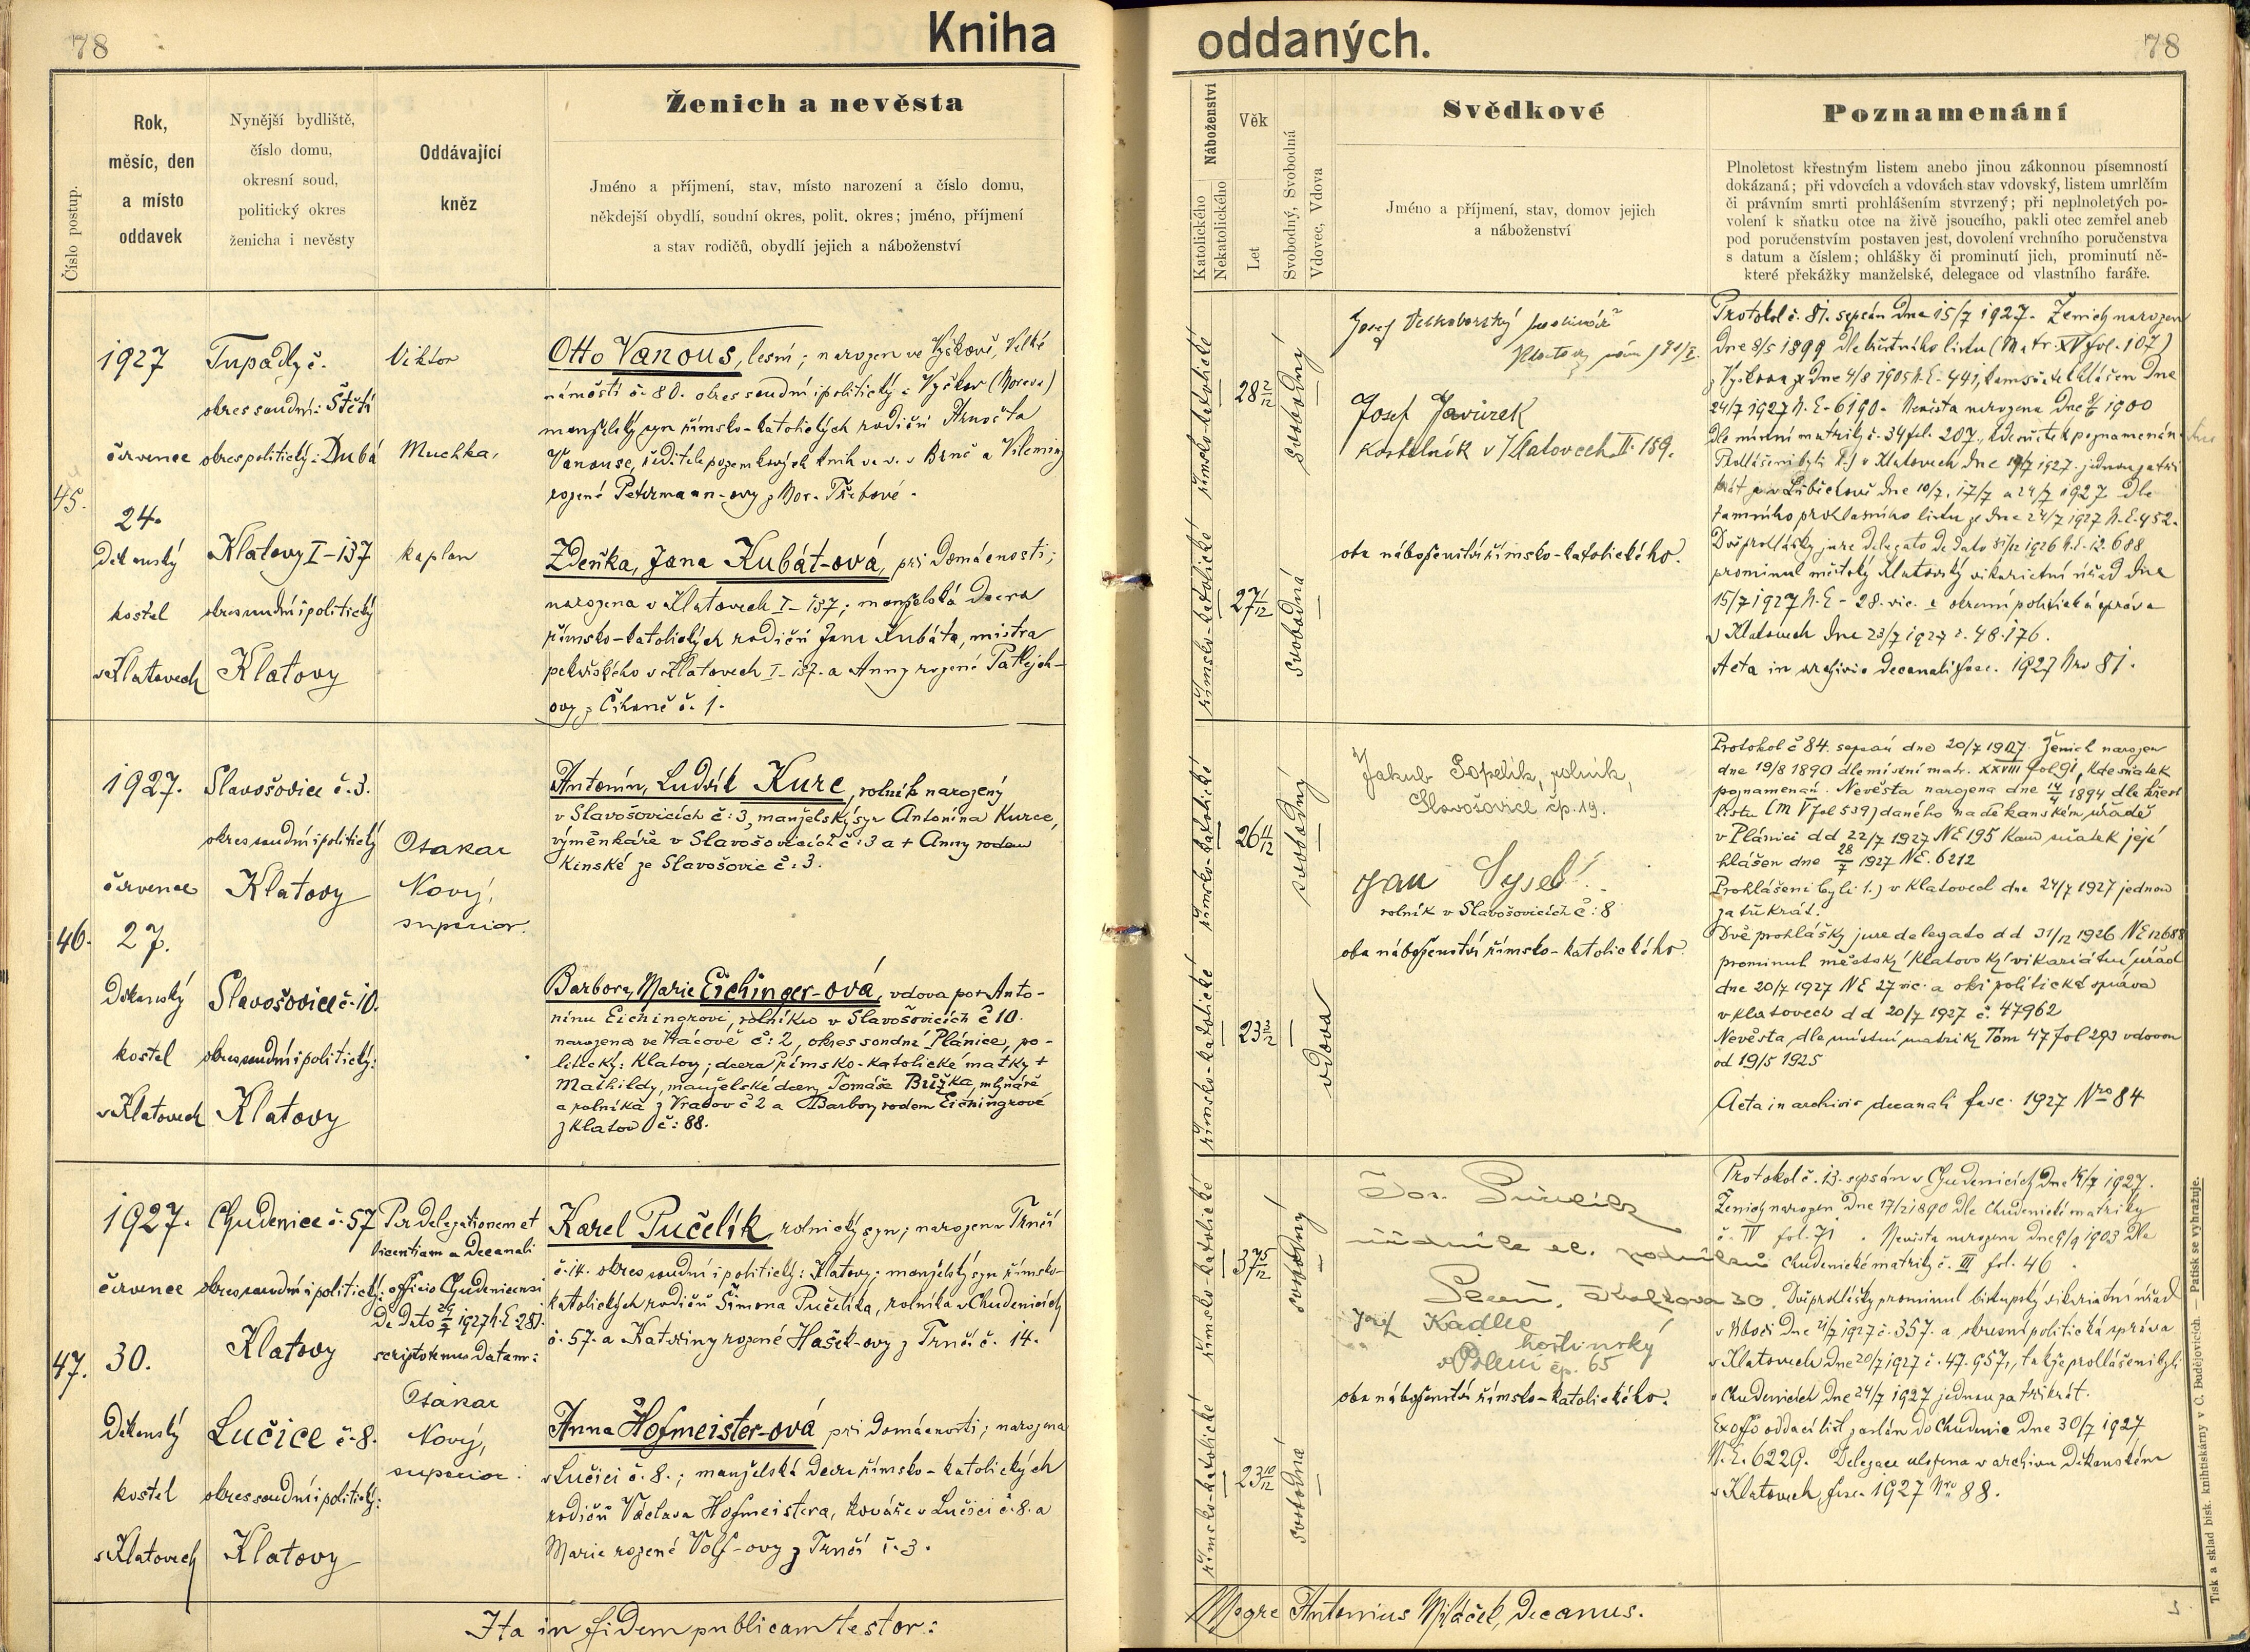 78
Kniha
oddaných.
78
Číslo postup.
Rok,
měsíc, den
a místo
oddavek
Nynější bydliště,
číslo domu,
okresní soud,
politický okres
ženicha i nevěsty
Oddávající
kněz
Ženich a nevěsta
Jméno a příjmení, stav, místo narození a číslo domu,
někdejší obydlí, soudní okres, polit. okres; jméno, příjmení
a stav rodičů, obydlí jejich a náboženství
Náboženství
Katolického
Nekatolického
Věk
Let
Svobodný, Svobodná
Vdovec, Vdova
Svědkové
Jméno a příjmení, stav, domov jejich
a náboženství
Poznamenání
Plnoletost křestným listem anebo jinou zákonnou písemností
dokázaná; při vdovcích a vdovách stav vdovský, listem umrlčím
či právním smrti prohlášením stvrzený; při neplnoletých po-
volení k sňatku otce na živě jsoucího, pakli otec zemřel aneb
pod poručenstvím postaven jest, dovolení vrchního poručenstva
s datum a číslem; ohlášky či prominutí jich, prominutí ně-
které překážky manželské, delegace od vlastního faráře.
45.
1927
července
24.
Děkanský
kostel
v Klatovech
Tupadly č.
okres soudní: Štětí
okres politický: Dubá
Klatovy I-137
okres soudní i politický
Klatovy
Viktor
Muchka,
kaplan
Otto Vanous, lesní; narozen ve Vyškově, Velké
náměstí č. 80. okres soudní i politický: Vyškov (Morava)
manželský syn římsko-katolických rodičů Arnošta
Vanouse, ředitele pozemkových knih ve v. v Brně a Vileminy
rozené Petermann-ovy z Mor. Třebové.
Zdeňka, Jana Kubát-ová, při domácnosti;
narozena v Klatovech I-137; manželská dcera
římsko-katolických rodičů Jana Kubáta, mistra
pekařského v Klatovech I-137. a Anny rozené Patlejch-
ovy z Čihaně č. 1.
římsko-katolické
28 2/12
svobodný
římsko-katolické
27 1/12
svobodná
Josef
Josef Javůrek
kostelník v Klatovech II. 159.
oba náboženství římsko-katolického.
Protokol č. 81. sepsán dne 15/7 1927. Ženich narozen
dne 8/5 1899 dle křestního listu (Matr. XV fol. 107)
z Vyškova ze dne 4/8 1905 N.E-441, kam sňatek hlášen dne
24/7 1927 N.E-6190. Nevěsta narozena dne 1900
dle místní matriky č. 34 fol. 207., kde sňatek poznamenán.
Prohlášeni byli 1.) v Klatovech dne 17/7 1927. jednou za tři-
krát v Liběchově dne 10/7, 17/7 a 24/7 1927 dle
tamního prohlasního listu ze dne 24/7 1927 N.E-452.
Dvě prohlášky jure delegato de dato 31/12 1926 N.E. 12.688
prominul městský klatovský vikariátní úřad dne
15/7 1927 N.E - 28. vic. a okresní politická správa
v Klatovech dne 23/7 1927 č. 48.176.
Acta in archivio decanali fasc. 1927 Nro 81.
46.
1927.
července
27.
Děkanský
kostel
v Klatovech
Slavošovice č. 3.
okres soudní i politický
Klatovy
Slavošovice č. 10.
okres soudní i politický:
Klatovy
Otakar
Nový,
superior.
Antonín, Ludvík Kurc, rolník narozený
v Slavošovicích č: 3, manželský syn Antonína Kurce,
výměnkáře v Slavošovicích č: 3 a + Anny rodem
Kinské ze Slavošovic č: 3.
Barbora Marie Eichinger-ová, vdova po + Anto-
nínu Eichingrovi, rolníku v Slavošovicích č 10.
narozena ve Vracově č: 2, okres soudní Plánice, po-
litický: Klatovy; dcera římsko-katolické matky +
Mathildy, manželské dcery Tomáše Brůžka, mlynáře
a rolníka z Vracov č 2 a Barbory rodem Eichingrové
z Klatov č: 88.
římsko-katolické
26 11/12
svobodný
římsko-katolické
vdova
Jakub Popelík, rolník,
Slavošovice čp. 19.
Jan Sysel
rolník v Slavošovicích č: 8
oba náboženství římsko-katolického.
Protokol č 84. sepsán dne 20/7 1927. Ženich narozen
dne 19/8 1890 dle místní matr. XXVIII fol 91, kde sňatek
poznamenán. Nevěsta narozena dne 14/4 1894 dle křest
listu (M V fol 539) daného na děkanském úřadě
v Plánici d d 22/7 1927 NE 195 kam sňatek její
hlášen dne 28/7 1927 NE. 6212
Prohlášeni byli 1.) v Klatovech dne 24/7 1927 jednou
za třikrát.
Dvě prohlášky jure delegato d d 31/12 1926 NE 12688
prominul městský klatovský vikariátní úřad
dne 20/7 1927 NE 27 vic. a okr. politická správa
v Klatovech d d 20/7 1927 č. 47962
Nevěsta, dle místní matriky Tom 47 fol 293 vdovou
od 19/5 1925
Acta in archivio decanali fasc. 1927 Nro 84
47.
1927.
července
30.
Děkanský
kostel
v Klatovech
Chudenice č. 57
okres soudní i politický:
Klatovy
Lučice č. 8.
okres soudní i politický:
Klatovy
Per delegationem et
licentiam a decanali
officio Chudenicensi
de dato 29/7 1927 N.E 281.
scripto emus datam:
Otakar
Nový,
superior.
Karel Pučelík, rolnický syn; narozen v Trnčí
č. 14. okres soudní i politický: Klatovy; manželský syn římsko-
katolických rodičů Šimona Pučelíka, rolníka v Chudenicích
č. 57. a Kateřiny rozené Hašek-ovy z Trnčí č. 14.
Anna Hofmeister-ová při domácnosti; narozena
v Lučici č. 8.; manželská dcera římsko-katolických
rodičů Václava Hofmeistera, kováře v Lučici č. 8. a
Marie rozené Volf-ovy z Trnčí č. 3.
římsko-katolické
37 5/12
svobodný
římsko-katolické
23 10/12
svobodná
Jos. Pučelík
úředník el. podniků
Plzeň, 30.
Josef Kadlec
hostinský
v Poleni čp. 65
oba náboženství římsko-katolického.
Protokol č. 13. sepsán v Chudenicích dne 14/7 1927.
Ženich narozen dne 17/2 1890 dle Chudenické matriky
č. IV fol. 71. Nevěsta narozena dne 9/9 1903 dle
Chudenické matriky č. III fol. 46.
Dvě prohlášky prominul biskupský vikariátní úřad
dne 21/7 1927 č. 357. a okresní politická správa
v Klatovech dne 20/7 1927 č. 47.957., takže prohlášeni byli
v Chudenicích dne 24/7 1927 jednou za třikrát.
Ex offo oddací list zaslán do Chudenic dne 30/7 1927
N.E. 6229. Delegace uložena v archivu děkanském
v Klatovech, fasc. 1927 Nro 88.
Ita in fidem publicam testor:
Antonius Mláček, decanus.
Tisk a sklad bisk. knihtiskárny v Č. Budějovicích. — Patisk se vyhražuje.